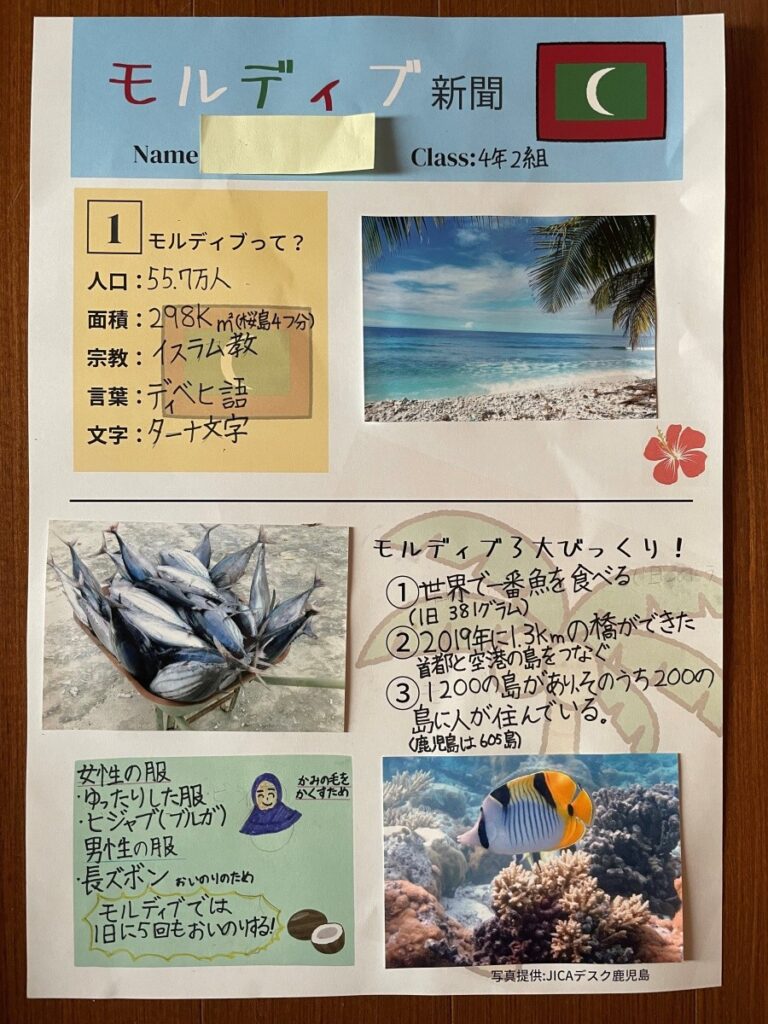 モルディブ 新聞
Name
Class:4年2組
1 モルディブって?
人口:55.7万人
面積:298K㎡(桜島4つ分)
宗教:イスラム教
言葉:ディベヒ語
文字:ターナ文字
モルディブ3大びっくり!
①世界で一番魚を食べる
(1日 381グラム)
②2019年に1.3Kmの橋ができた
首都と空港の島をつなぐ
③1200の島があり、そのうち200の
島に人が住んでいる。
(鹿児島は605島)
女性の服
・ゆったりした服
・ヒジャブ(ブルガ)
かみの毛を
かくすため
男性の服
・長ズボン おいのりのため
モルディブでは
1日に5回もおいのりする!
写真提供:JICAデスク鹿児島